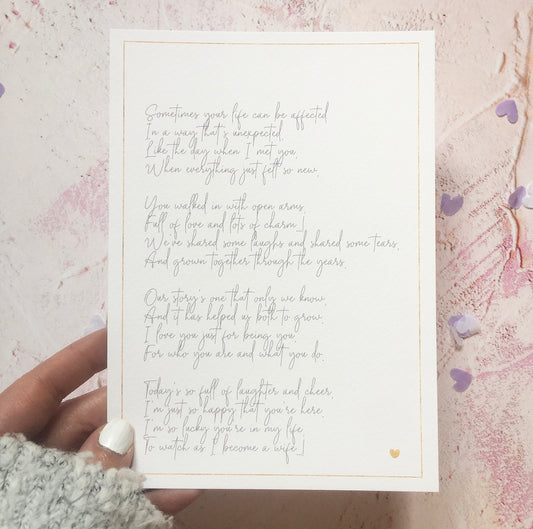 Sometimes your life can be affected
In a way that's unexpected.
Like the day when I met you.
When everything just felt so new.
You walked in with open arms
Full of love and lots of charm.
We've shared some laughs and shared some tears.
And grown together through the years.
Our story's one that only we know.
And it has helped us both to grow.
I love you just for being you.
For who you are and what you do.
Today's so full of laughter and cheer.
I'm just so happy that you're here
I'm so lucky you're in my life
To watch as I become a wife.